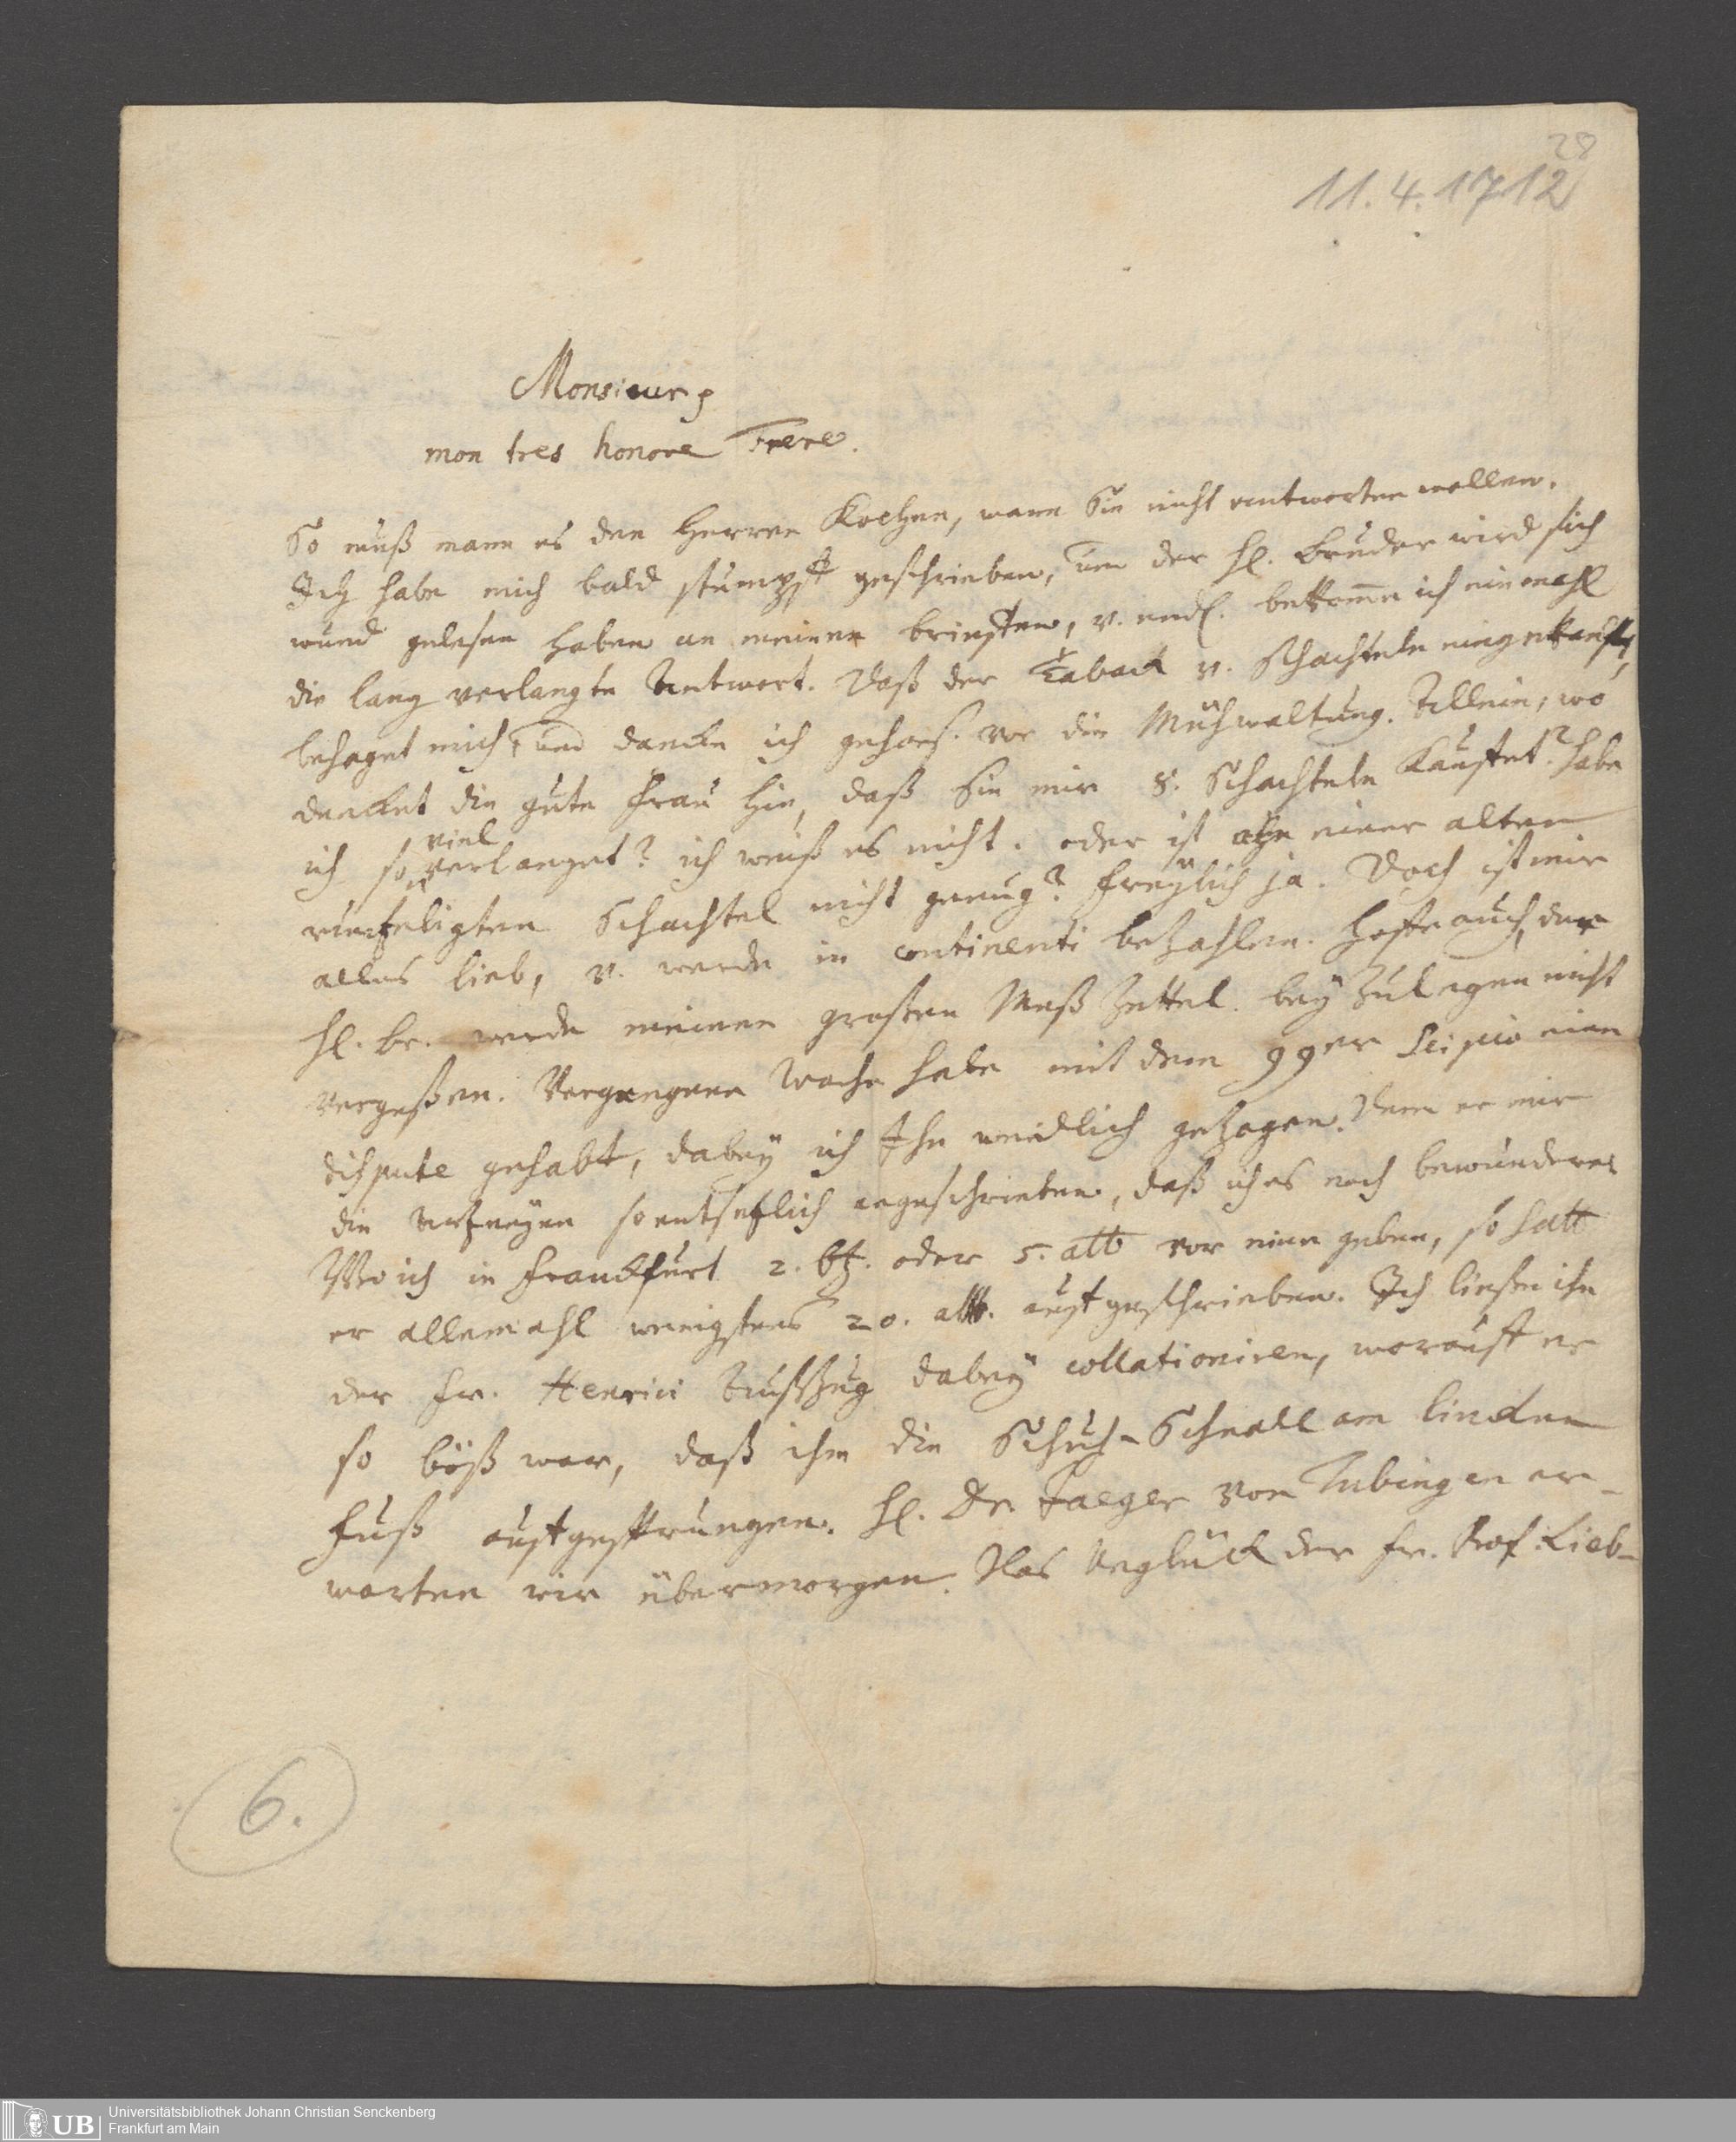 28
11.4.1712
Monsieur
mon tres honore Frere.
So muß mann es den Herren Kochen, wann Sie nicht antworten wollen.
Ich habe mich bald stumpff geschrieben, und der Hl. Bruder wird sich
wund gelesen haben an meinen brieffen, v. endl. bekom̅e ich einmahl
die lang verlangte Antwort. Daß der Taback v. Schachteln eingekaufft,
behaget mich, und dancke ich gehors. vor die Mühwaltung. Allein, wo
dencket die gute Frau hin, daß Sie mir 8. Schachteln Kauffet? habe
ich so viel verlanget? ich weiß es nicht. oder ist ahn einer alten
runtzeligten Schachtel nicht genug? freÿlich ja. Doch ist mir
alles lieb, v. werde in continenti bezahlen. Hoffe auch, der
Hl. br. werde meinen großen Meß Zettel beÿ zu legen nicht
vergeßen. Vergangene Woche habe mit dem Scipio eine
dispute gehabt, dabeÿ ich Ihn weidlich gezogen. Denn er mir
die Artzneÿen so entsetzlich angeschrieben, daß ich es noch bewundere
Wo ich in Franckfurt 2. btz. oder 5. alb vor eine geben, so hatt
er allemahl wenigstens 20. alb. auffgeschrieben. Ich ließe ihn
der Fr. Henrici Auszug dabeÿ collationiren, worauff er
so böß war, daß ihm die Schuh-Schnall am lincken
Fuß auffgesprungen. Hl. Dr. Jaeger von Tubingen er-
warten wir übermorgen. Das Unglück der Fr. Prof. Lieb-
6.
UB
Universitätsbibliothek Johann Christian Senckenberg
Frankfurt am Main